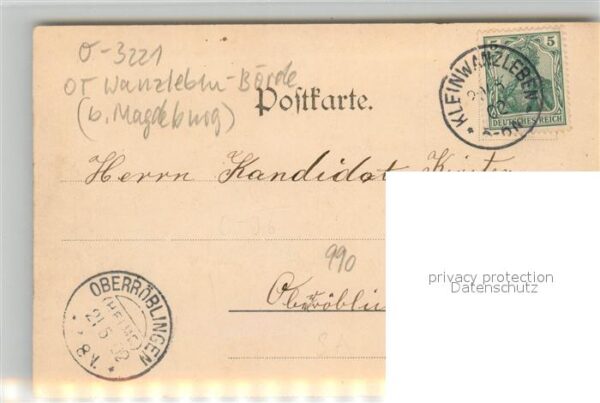 o-3221
OT Wanzleben-Börde
(b. Magdeburg)
Postkarte.
5 5
DEUTSCHES REICH
* KLEINWANZLEBEN
02
Herrn Kandidat
990
privacy protection
Datenschutz
OBERRÖBLINGEN
(HELME)
21 5 02
8 V.
Oberröblin